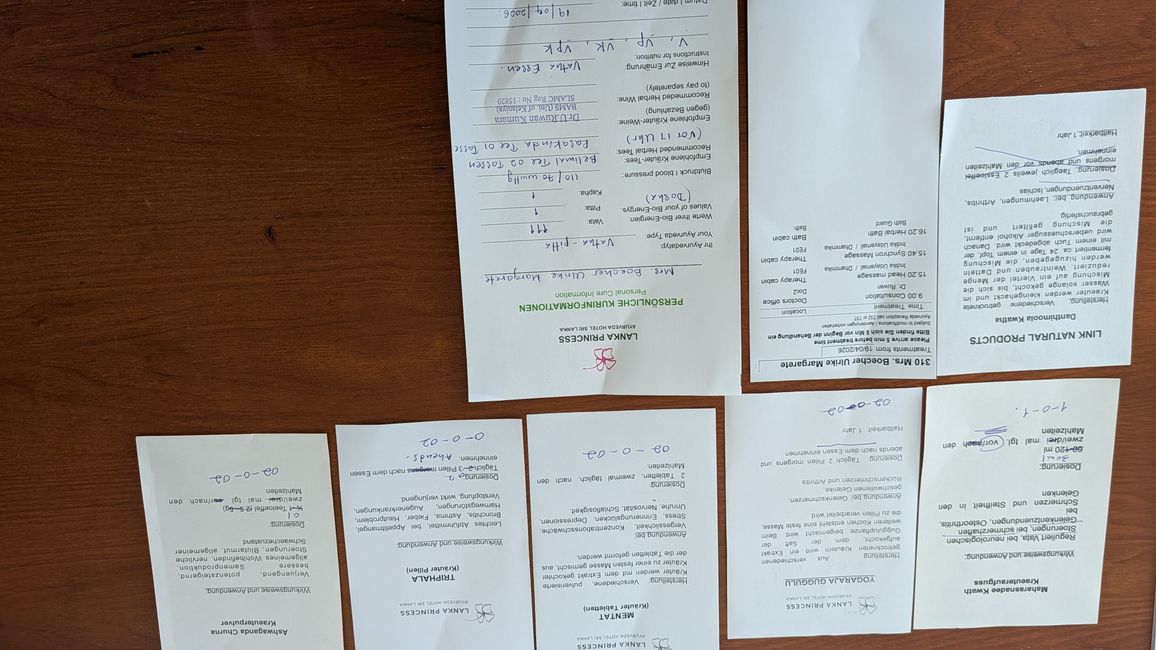 Maharasnadee Kwath
Kraeuterauguss
Wirkungsweise und Anwendung:
Reguliert Vata, bei neurologischen
Stoerungen, bei schmerzhaften
Gelenkentzuendungen, Osteorthritis,
bei
Schmerzen und Steifheit in den
Gelenken
Dosierung:
30 ml
60-120 ml
zwei/drei mal tgl. vor/nach den
Mahlzeiten
1-0-1.
LANKA PRINCESS
AYURVEDA HOTEL SRI LANKA
YOGARAJA GUGGULU
Herstellung: Aus verschiedenen
getrockneten Kraütern wird ein Extrakt
aufgekocht, dem der Saft der
Guggulpflanze beigemacht wird Beim
weiteren Kochen entsteht eine feste Masse,
die zu Pillen verarbeitet wird
Anwendung bei: Gelenkschmerzen,
geschwollenen Gelenke
Rückenschmerzen und Arthritis
Dosierung: Täglich 2 Pillen morgens und
abends nach dem Essen einnehmen
Haltbarkeit: 1 Jahr
02-0-02
LANKA PRINCESS
AYURVEDA HOTEL SRI LANKA
MENTAT
(Kräuter Tabletten)
Herstellung: Verschiedene, pulverisierte
Kräuter werden mit dem Extrakt gekochter
Kräuter zu einer festen Masse gemischt, aus
der die Tabletten geformt werden.
Anwendung bei
Vergesslichkeit, Konzentrationsschwäche
Stress, Erinnerungslücken, Depressionen,
Unruhe, Nervosität, Schlaflosigkeit.
Dosierung
2 Tabletten zweimal täglich, nach den
Mahlzeiten
02-0-02
LANKA PRINCESS
AYURVEDA HOTEL SRI LANKA
TRIPHALA
(Kräuter Pillen)
Wirkungsweise und Anwendung:
Leichtes Abführmittel, bei Appetitmangel,
Bronchitis, Asthma, Fieber, Hautproblem,
Harnwegstörungen, Augenerkrankungen,
Verstopfung, wirkt verjüngend
Dosierung 02
Täglich 2-3 Pillen morgens nach dem Essen
einnehmen. Abends.
0-0-02
Ashwaganda Churna
Kraeuterpulver
Wirkungsweise und Anwendung:
Verjuengend, potenzsteigernd,
bessere Samenproduktion,
allgemeines Wohlbefinden, nervliche
Stoerungen, Blutarmut, allgemeiner
Schwaechezustand
Dosierung
01
Teeloeffel
zwei/drei mal tgl vor/nach den
Mahlzeiten
02-0-02
LINK NATURAL PRODUCTS
Danthimoola Kwatha
Herstellung: Verschiedene getrocknete
Kraeuter werden kleingehackt und im
Wasser solange gekocht, bis sich die
Mischung auf ein Viertel der Menge
reduziert. Weintrauben und Datteln
werden hinzugegeben, die Mischung
fermentiert ca. 24 Tage in einem Topf, der
mit einem Tuch abgedeckt wird. Danach
wird ueberschuessiger Alkohol entfernt,
die Mischung gefiltert und ist
gebrauchsfertig.
Anwendung bei: Laehmungen, Arthritis,
Nervenentzuendungen, Ischias,
Dosierung: Taeglich jeweils 2 Essloeffel
morgens und abends vor den Mahlzeiten
einnehmen
Haltbarkeit: 1 Jahr
310 Mrs. Boecher Ulrike Margarete
Treatments from 19/04/2026
Please arrive 5 min before treatment time
Bitte finden Sie sich 5 Min vor Beginn der Behandlung ein
Subject to modifications / Aenderungen vorbehalten
Ayurveda Reception call 732 or 737
Time Treatment Location
9.00 Consultation Doctors office
Dr. Ruwan Doc2
15.20 Head massage Therapy cabin
Indika Udayamal / Dhammika FE01
15.45 Synchron Massage Therapy cabin
Indika Udayamal / Dhammika FE01
16.20 Herbal Bath Bath cabin
Bath Guard Bath
LANKA PRINCESS
AYURVEDA HOTEL SRI LANKA
PERSÖNLICHE KURINFORMATIONEN
Personal Cure Information
Mrs. Boecher Ulrike Margarete
Ihr Ayurvedatyp:
Your Ayurveda Type: Vatha - pitta
Werte Ihrer Bio-Energien: Vata: 111
Values of your Bio-Energys: Pitta: 1
(Dosha) Kapha: 1
Blutdruck | blood pressure: 110/70 mmHg
Empfohlene Kräuter-Tees: Belimal Tee 02 Tassen
Recommended Herbal Tees: Rasakinda Tee 01 Tasse
(Vor 17 Uhr)
Empfohlene Kräuter-Weine:
(gegen Bezahlung)
Recommeded Herbal Wine:
(to pay separetely)
Dr.U.Ruwan Kumara
BAMS (Uni. of Kelaniya)
SLAMC Reg No : 15829
Hinweise Zur Ernährung: Vatha Essen.
Instructions for nutrition:
V, VP, VK, VPK
19/04/2026.
Datum | date / Zeit | time: